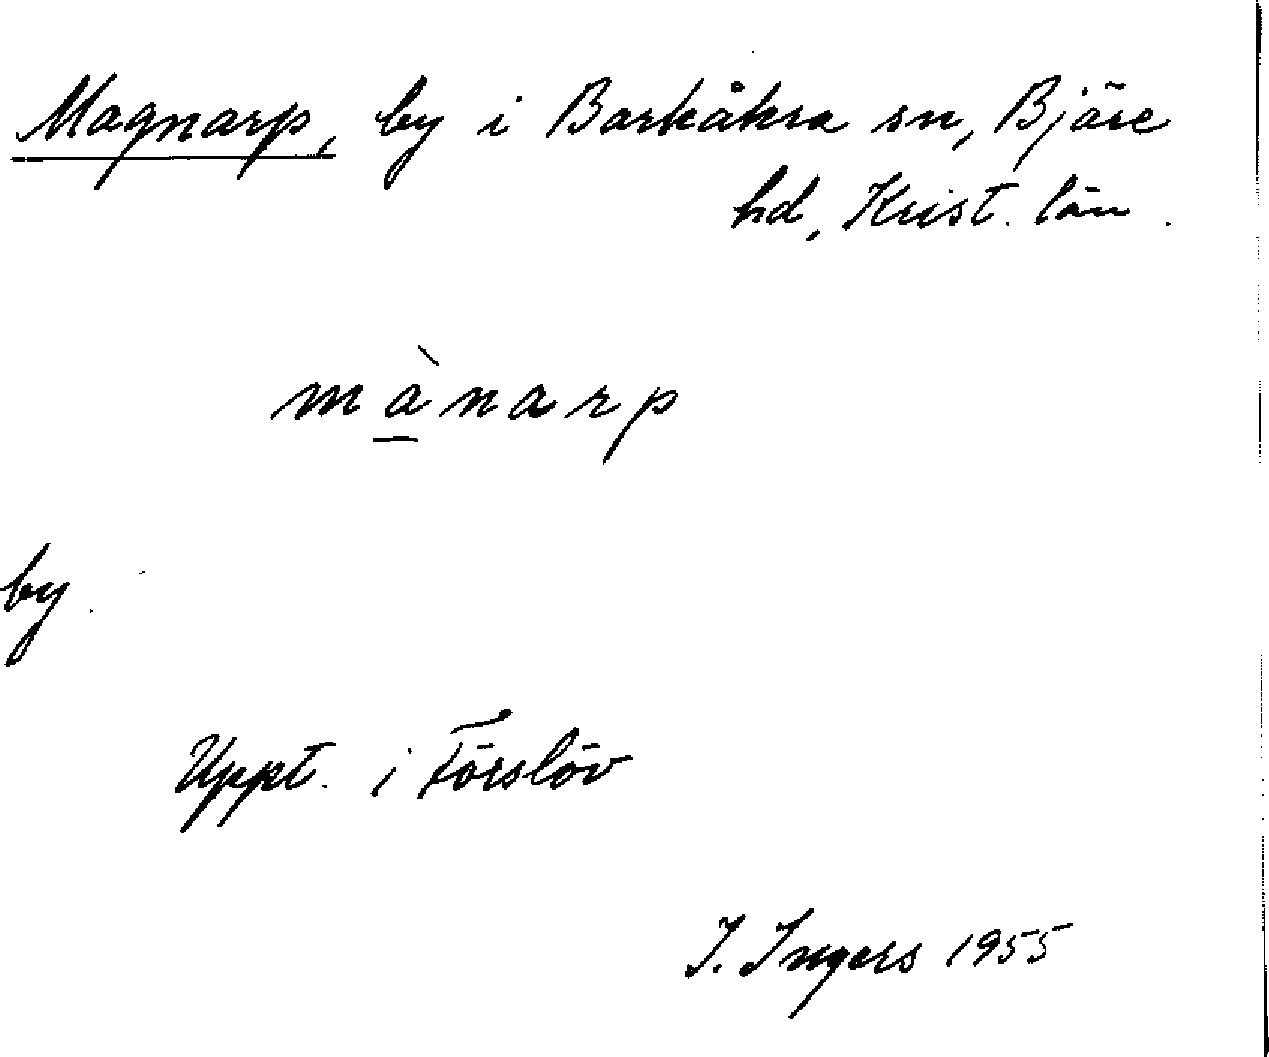 Magnarp, by i Barkåkra sn, Bjäre
hd, Krist. län.
mànarp
by.
Uppt. i Förslöv
I. Ingers 1955